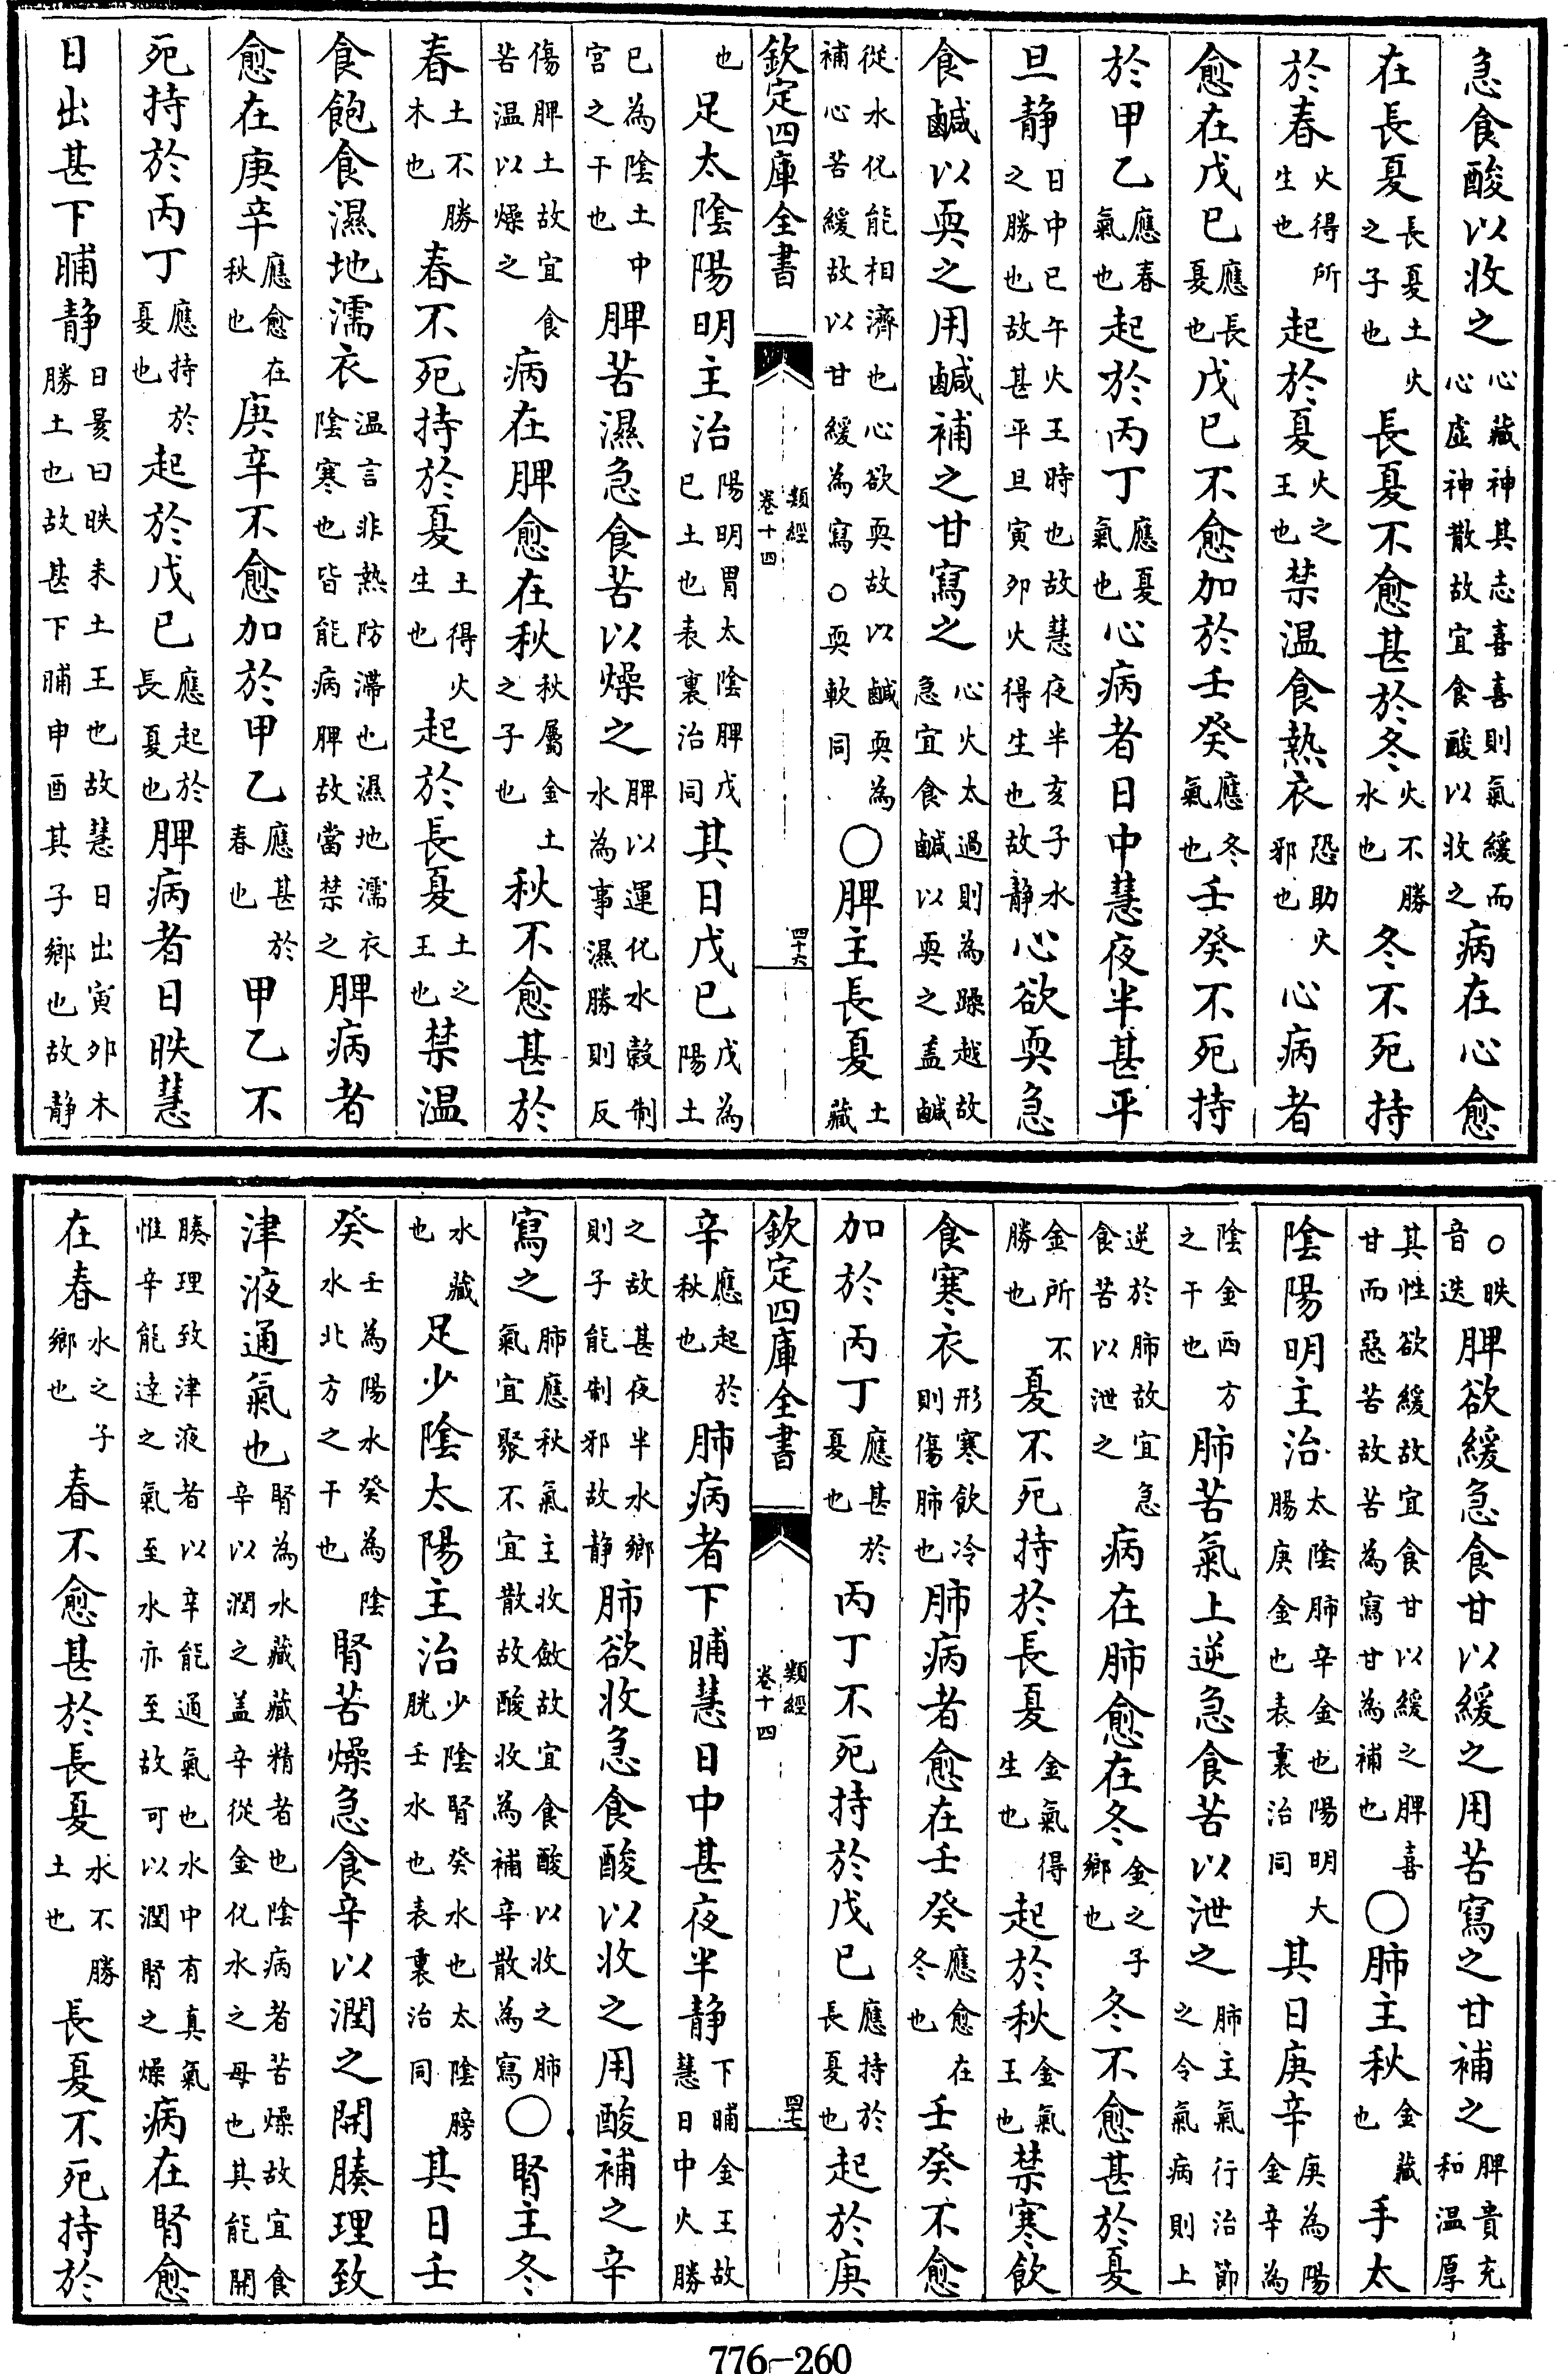 急食酸以收之心藏神其志喜喜則氣緩而心虛神散故宜食酸以收之病在心愈
在長夏長夏土火之子也長夏不愈甚於冬火不勝水也冬不死持
於春火得所生也起於夏火之王也禁温食熱衣恐助火邪也心病者
愈在戊巳應長夏也戊巳不愈加於壬癸應冬氣也壬癸不死持
於甲乙應春氣也起於丙丁應夏氣也心病者日中慧夜半甚平
旦静日中巳午火王時也故慧夜半亥子水之勝也故甚平旦寅夘火得生也故静心欲耎急
食鹹以耎之用鹹補之甘寫之心火太過則為躁越故急宜食鹹以耎之盖鹹
從水化能相濟也心欲耎故以鹹耎為補心苦緩故以甘緩為寫○耎軟同○脾主長夏土藏
欽定四庫全書 類經 卷十四 四十六
也足太陰陽明主治陽明胃太陰脾戊巳土也表裏治同其日戊巳戊為陽土
巳為陰土中宮之干也脾苦濕急食苦以燥之脾以運化水穀制水為事濕勝則反
傷脾土故宜食苦温以燥之病在脾愈在秋秋屬金土之子也秋不愈甚於
春土不勝木也春不死持於夏土得火生也起於長夏土之王也禁温
食飽食濕地濡衣温言非熱防滯也濕地濡衣陰寒也皆能病脾故當禁之脾病者
愈在庚辛應愈在秋也庚辛不愈加於甲乙應甚於春也甲乙不
死持於丙丁應持於夏也起於戊巳應起於長夏也脾病者日昳慧
日出甚下晡静日昃曰昳未土王也故慧日出寅夘木勝土也故甚下晡申酉其子鄉也故静
○昳音迭脾欲緩急食甘以緩之用苦寫之甘補之脾貴充和温厚
其性欲緩故宜食甘以緩之脾喜甘而惡苦故苦為寫甘為補也○肺主秋金藏也手太
陰陽明主治太陰肺辛金也陽明大腸庚金也表裏治同其日庚辛庚為陽金辛為
陰金西方之干也肺苦氣上逆急食苦以泄之肺主氣行治節之令氣病則上
逆於肺故宜急食苦以泄之病在肺愈在冬金之子鄉也冬不愈甚於夏
金所不勝也夏不死持於長夏金氣得生也起於秋金氣王也禁寒飲
食寒衣形寒飲冷則傷肺也肺病者愈在壬癸應愈在冬也壬癸不愈
加於丙丁應甚於夏也丙丁不死持於戊巳應持於長夏也起於庚
欽定四庫全書 類經 卷十四 四十七
辛應起於秋也肺病者下晡慧日中甚夜半静下晡金王故慧日中火勝
之故甚夜半水鄉則子能制邪故静肺欲收急食酸以收之用酸補之辛
寫之肺應秋氣主收斂故宜食酸以收之肺氣宜聚不宜散故酸收為補辛散為寫○腎主冬
水藏也足少陰太陽主治少陰腎癸水也太陰膀胱壬水也表裏治同其日壬
癸壬為陽水癸為陰水北方之干也腎苦燥急食辛以潤之開腠理致
津液通氣也腎為水藏藏精者也陰病者苦燥故宜食辛以潤之盖辛從金化水之母也其能開
腠理致津液者以辛能通氣也水中有真氣惟辛能達之氣至水亦至故可以潤腎之燥病在腎愈
在春水之子鄉也春不愈甚於長夏水不勝土也長夏不死持於
776-260